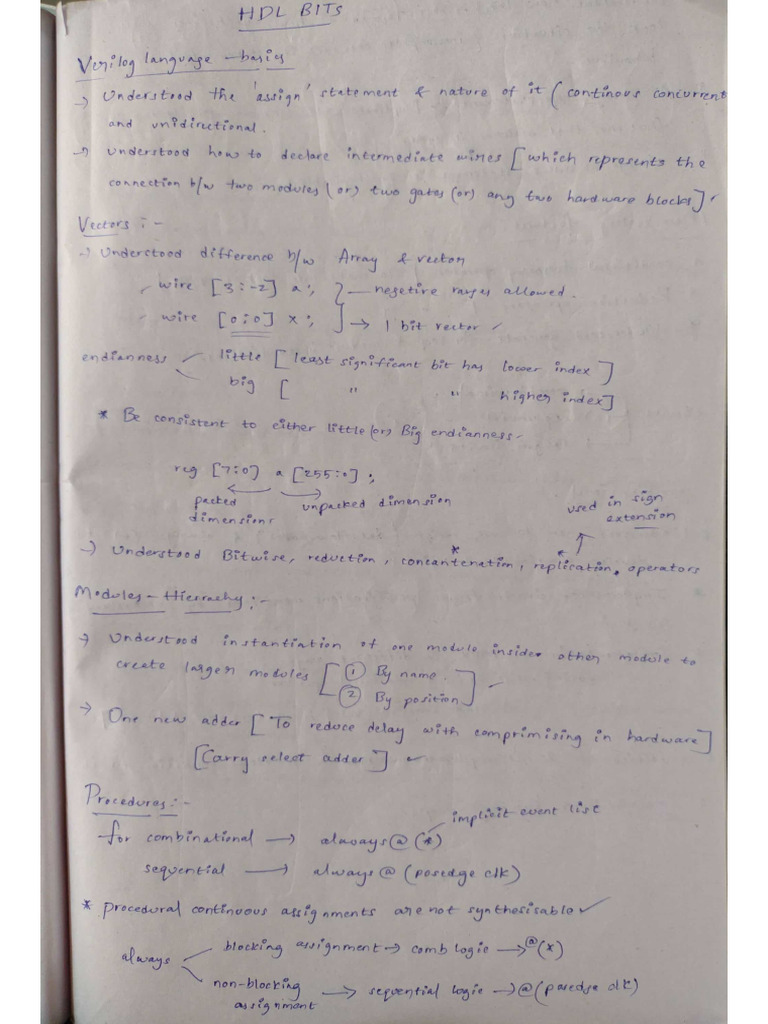 HDL BITS
Verilog language - basics
→ Understood the 'assign' statement & nature of it (continous concurrent
and unidirectional.
→ understood how to declare intermediate wires [which represents the
connection b/w two modules (or) two gates (or) any two hardware blocks]
Vectors :-
→ Understood difference b/w Array & vectors
wire [3:-2] a; — negetive ranges allowed.
wire [0:0] x; → 1 bit vector
endianness little [least significant bit has lower index]
big [ " " higher index]
* Be consistent to either little (or) Big endianness.
reg [7:0] a [255:0];
packed unpacked dimension
dimensions
used in sign
extension
→ Understood Bitwise, reduction, concantenation, replication operators
Modules - Hierrachy :-
→ Understood instantiation of one module inside other module to
create larger modules [① By name.
② By position]
→ One new adder [To reduce delay with comprimising in hardware]
[Carry select adder]
Procedures :-
implicit event list
for combinational → always@(*)
sequential → always@(posedge clk)
* procedural continuous assignments are not synthesisable
always blocking assignment → comb logic → @(*)
non-blocking → sequential logic → @(posedge clk)
assignment